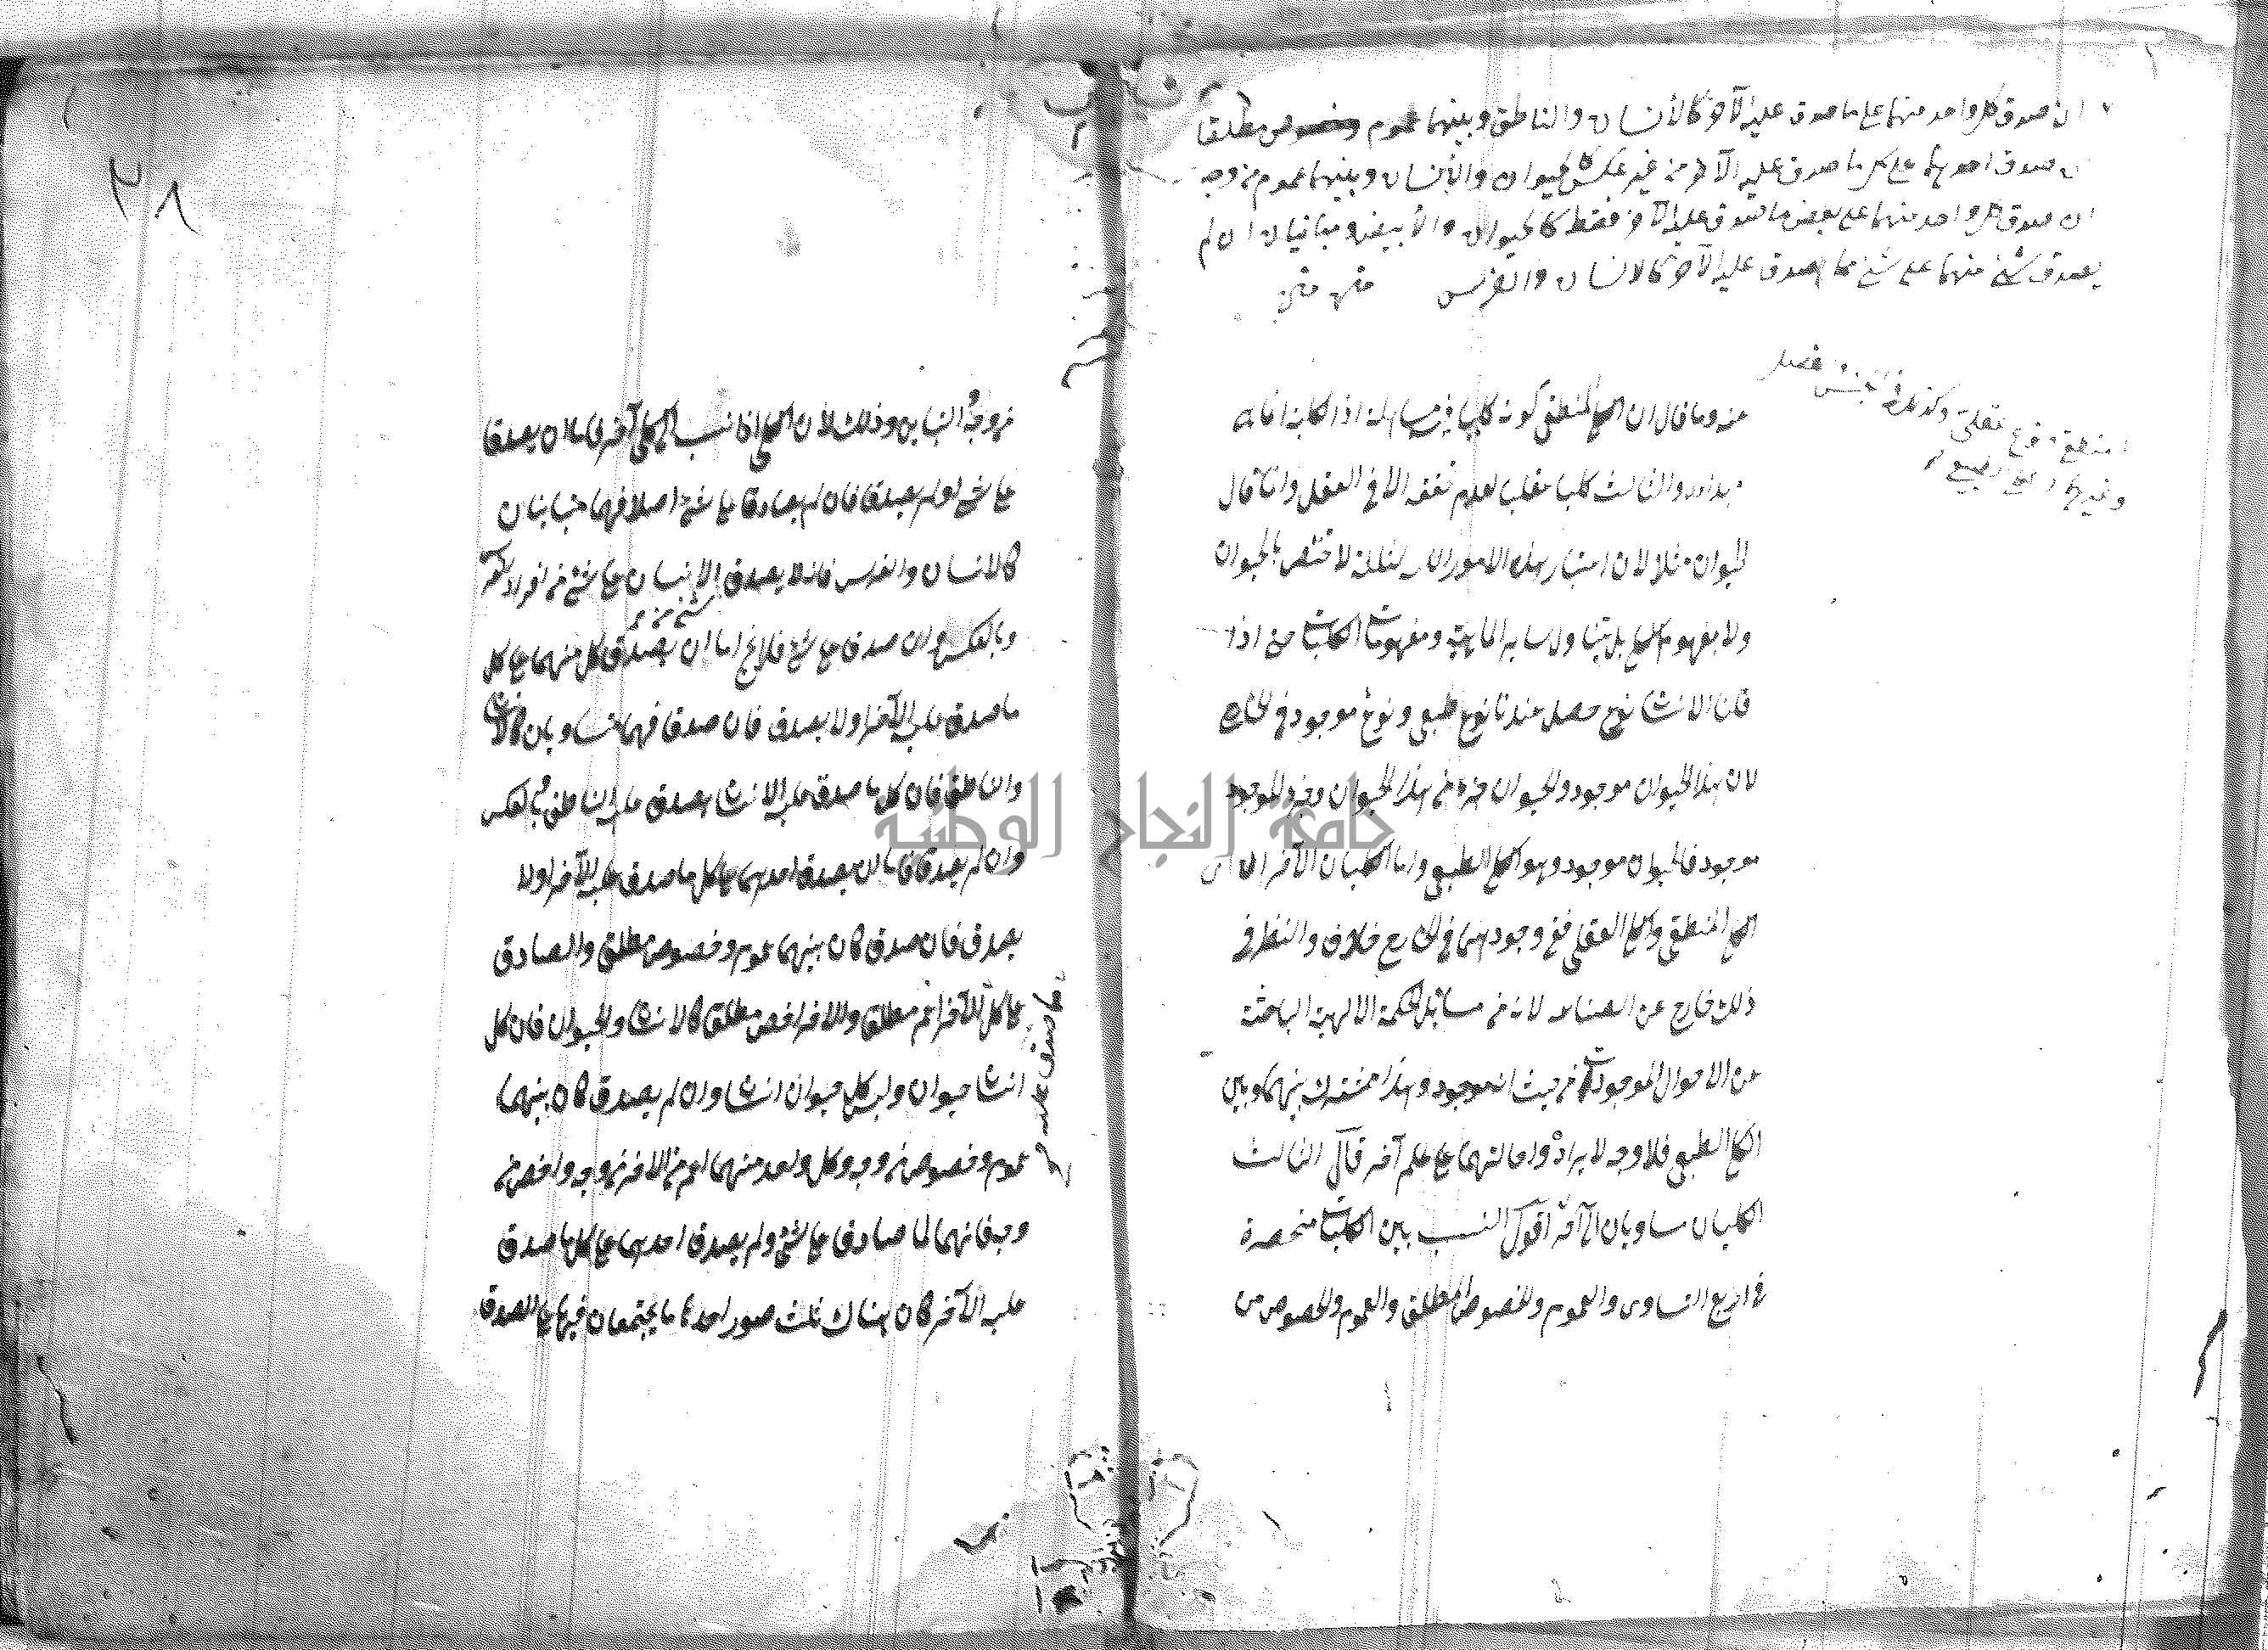 ان صدق كل واحد منهما على ما صدق عليه الآخر كالأنسان والناطق وبينهما عموم وخصوص مطلقا
ان صدق احدهما على كل ما صدق عليه الآخر من غير عكس كالحيوان والأنسان وبينهما عموم من وجه
ان صدق كل واحد منهما على بعض ما صدق عليه الآخر فقط كالحيوان والأبيض ومتباينان ان لم
يصدق شئ منهما على شئ مما صدق عليه الآخر كالانسان والفرس
منطقي نوع عقلي وكذلك في الجنس فصل
وغيرهما الطبيعي
عنه وما قال ان الكلي المنطقي كونه كليا
والثالث كليا عقليا لعدم تحققه الا في العقل وانما قال
الحيوان مثلا لان اعتبار هذه الامور الثلثة لا تختص بالحيوان
ولا بمفهوم الكلي بل يتناول سائر الماهية ومفهومات الكليات حتى اذا
قلنا الانسان نوع حصل عندنا نوع طبيعي ونوع موجود في الخارج
لان هذا الحيوان موجود والحيوان جزء من هذا الحيوان وجزء الموجود
موجود فالحيوان موجود وهو الكلي الطبيعي واما الكليان الآخران
الكلي المنطقي والكلي العقلي ففي وجودهما في الخارج خلاف والنظر في
ذلك خارج عن الصناعة لانه من مسائل الحكمة الالهية الباحثة
عن الاحوال الموجودات من حيث انه موجود وهذا مشترك بينهما وبين
الكلي الطبيعي فلا وجه لايراده واحالتهما على علم آخر قال الثالث
الكليان متساويان الى آخره اقول النسب بين الكليات منحصرة
في اربع التساوى والعموم والخصوص المطلق والعموم والخصوص من
٣٨
من وجه والتباين وذلك لأن الكلي اذا نسب الى كلي آخر فاما ان يصدقا
على شئ او لم يصدقا فان لم يصادقا على شئ اصلا فهما متباينان
كالانسان والفرس فانه لا يصدق الانسان على شئ من افراد الفرس
وبالعكس وان صدقا على شئ فلا يخ اما ان يصدق كل منهما على كل
ما صدق عليه الآخر اولا يصدق فان صدقا فهما متساويان كالانسان
والناطق فان كل ما صدق عليه الانسان يصدق عليه الناطق وبالعكس
وان لم يصدقا فاما ان يصدق احدهما على كل ما صدق عليه الآخر اولا
يصدق فان صدق كان بينهما عموم وخصوص مطلق والصادق
على كل الآخر اعم مطلقا والاخر اخص مطلقا كالانسان والحيوان فان كل
ما صدق عليه
انسان حيوان وليس كل حيوان انسان وان لم يصدق كان بينهما
عموم وخصوص من وجه وكل واحد منهما اعم من الاخر من وجه واخص من
وجه فانهما لما صادقا على شئ ولم يصدق احدهما على كل ما صدق
عليه الآخر كان هناك ثلث صور احدها ما يجتمعان فيها على الصدق
جامعة النجاح الوطنية